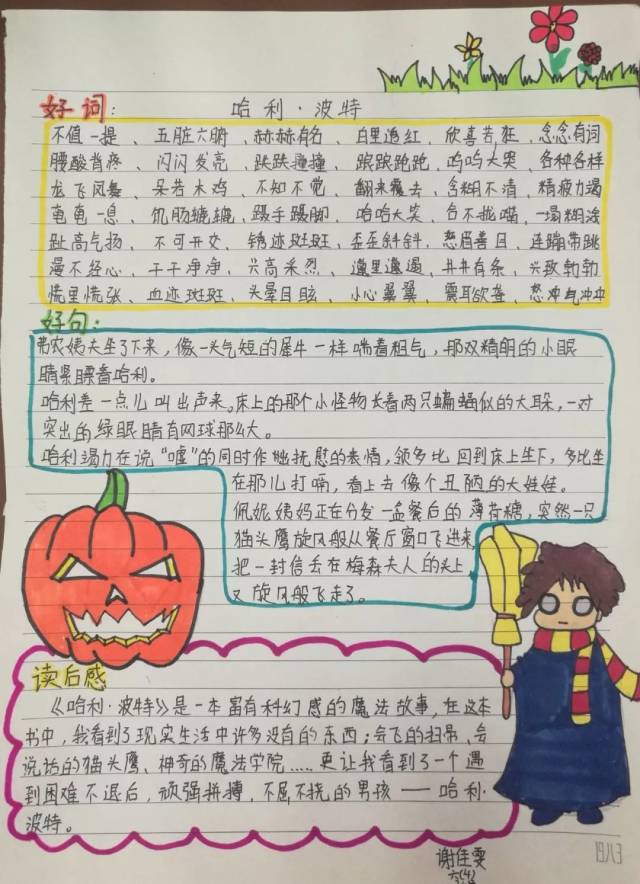 好词： 哈利·波特
不值一提、五脏六腑、赫赫有名、白里透红、欣喜若狂、念念有词
腰酸背疼、闪闪发亮、跌跌撞撞、跟跟跑跑、呜呜大哭、各种各样
龙飞凤舞、呆若木鸡、不知不觉、翻来覆去、含糊不清、精疲力竭
奄奄一息、饥肠辘辘、蹑手蹑脚、哈哈大笑、一塌糊涂
趾高气扬、不可开交、锈迹斑斑、歪歪斜斜、慈眉善目、连蹦带跳
漫不经心、干干净净、兴高采烈、邋里邋遢、井井有条、兴致勃勃
慌里慌张、血迹斑斑、头晕目眩、小心翼翼、震耳欲聋、怒冲气冲冲
好句：
弗农姨夫坐了下来，像一头气短的犀牛一样喘着粗气，那双精明的小眼
睛紧瞟着哈利。
哈利差一点儿叫出声来。床上的那个小怪物长着两只蝙蝠似的大耳朵，一对
突出的绿眼睛有网球那么大。
哈利竭力在说“嘘”的同时作出抚慰的表情，领多比回到床上坐下，多比坐
在那儿打嗝，看上去像个丑陋的大娃娃。
佩妮姨妈正在分发一盒餐后的薄荷糖，突然一只
猫头鹰旋风般从餐厅窗口飞进来，
把一封信丢在梅森夫人的头上，
又旋风般飞走了。
读后感
《哈利·波特》是一本富有科幻感的魔法故事，在这本
书中，我看到了现实生活中许多没有的东西；会飞的扫帚、会
说话的猫头鹰、神奇的魔法学院……更让我看到了一个遇
到困难不退后，顽强拼搏，不屈不挠的男孩——哈利·
波特。
谢佳雯
六(4)